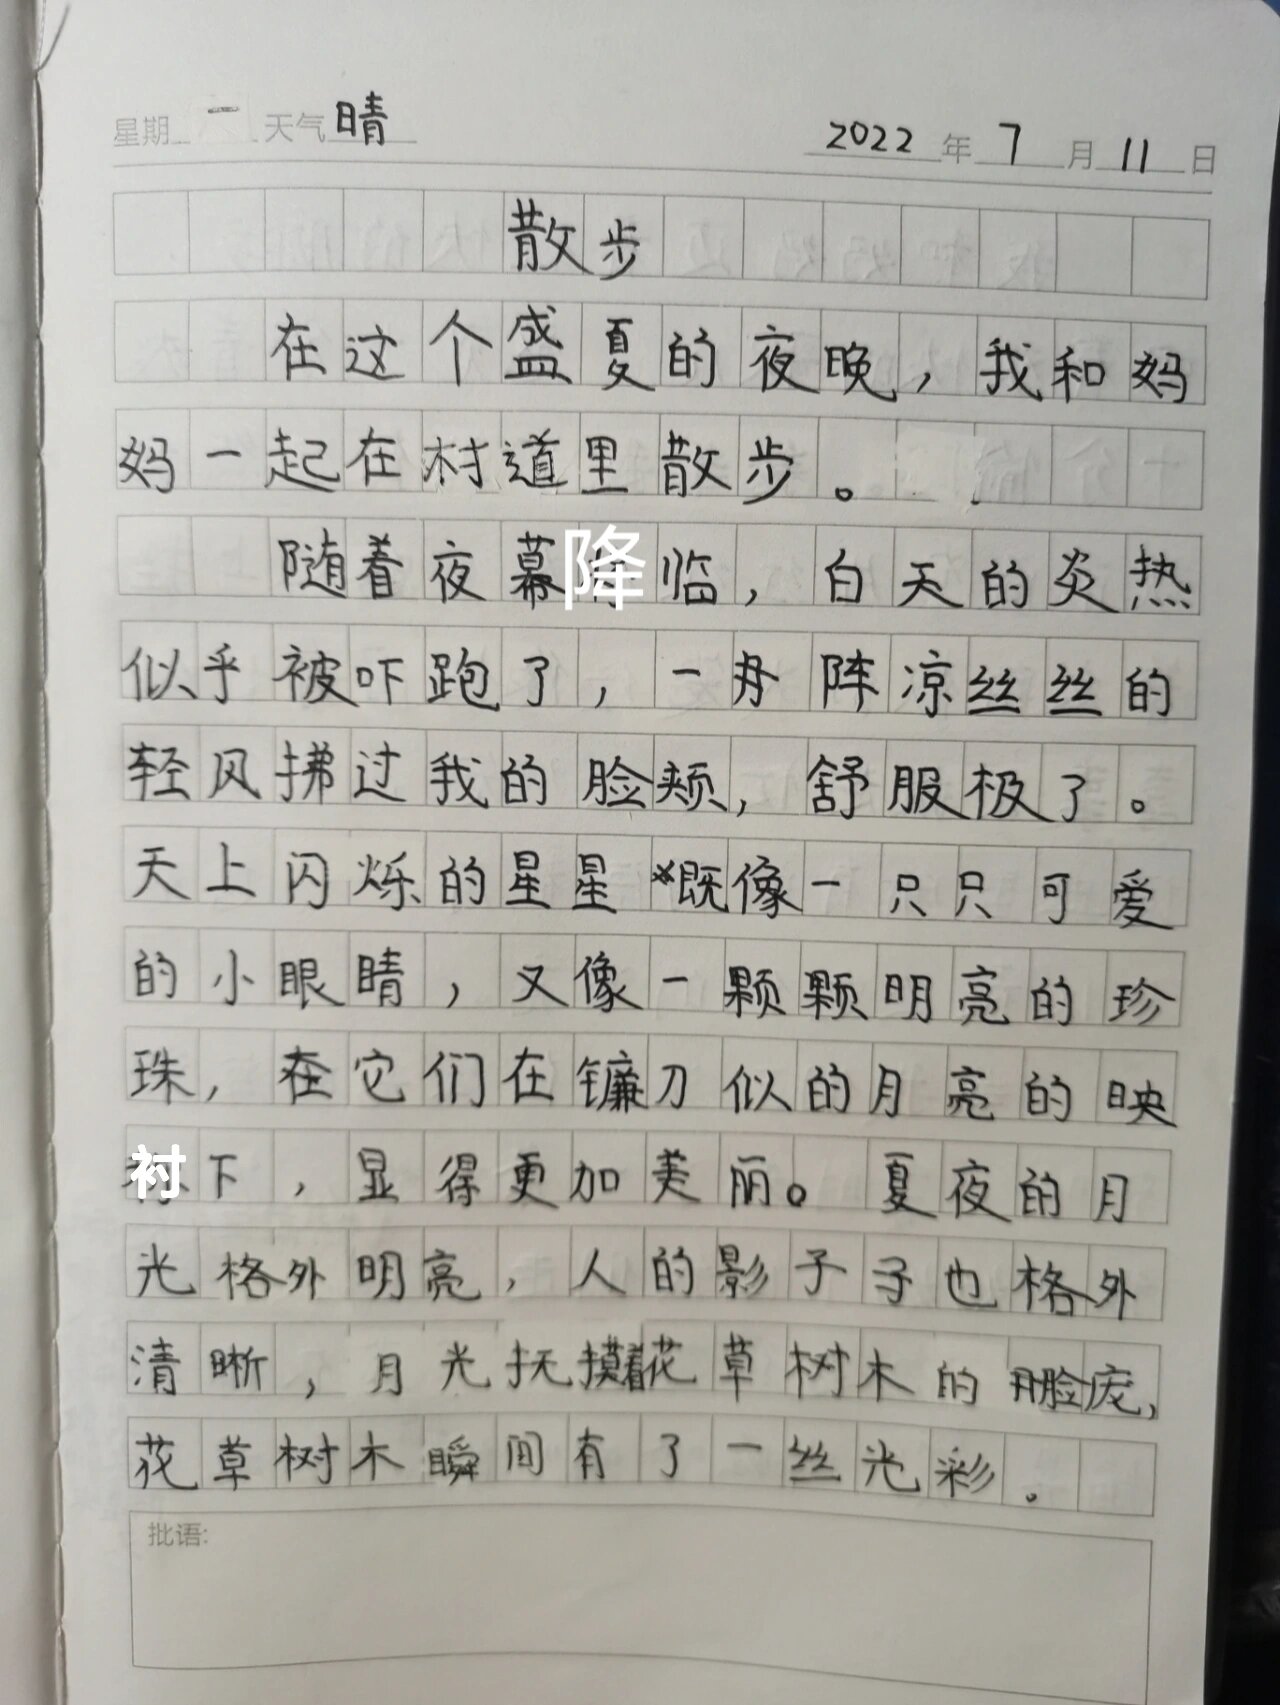 星期一 天气晴 2022年7月11日
散步
在这个盛夏的夜晚，我和妈
妈一起在村道里散步。
随着夜幕降临，白天的炎热
似乎被吓跑了，一阵凉丝丝的
轻风拂过我的脸颊，舒服极了。
天上闪烁的星星既像一只只可爱
的小眼睛，又像一颗颗明亮的珍
珠，在它们在镰刀似的月亮的映
衬下，显得更加美丽。夏夜的月
光格外明亮，人的影子子也格外
清晰，月光抚摸着花草树木的脸庞，
花草树木瞬间有了一丝光彩。
批语: